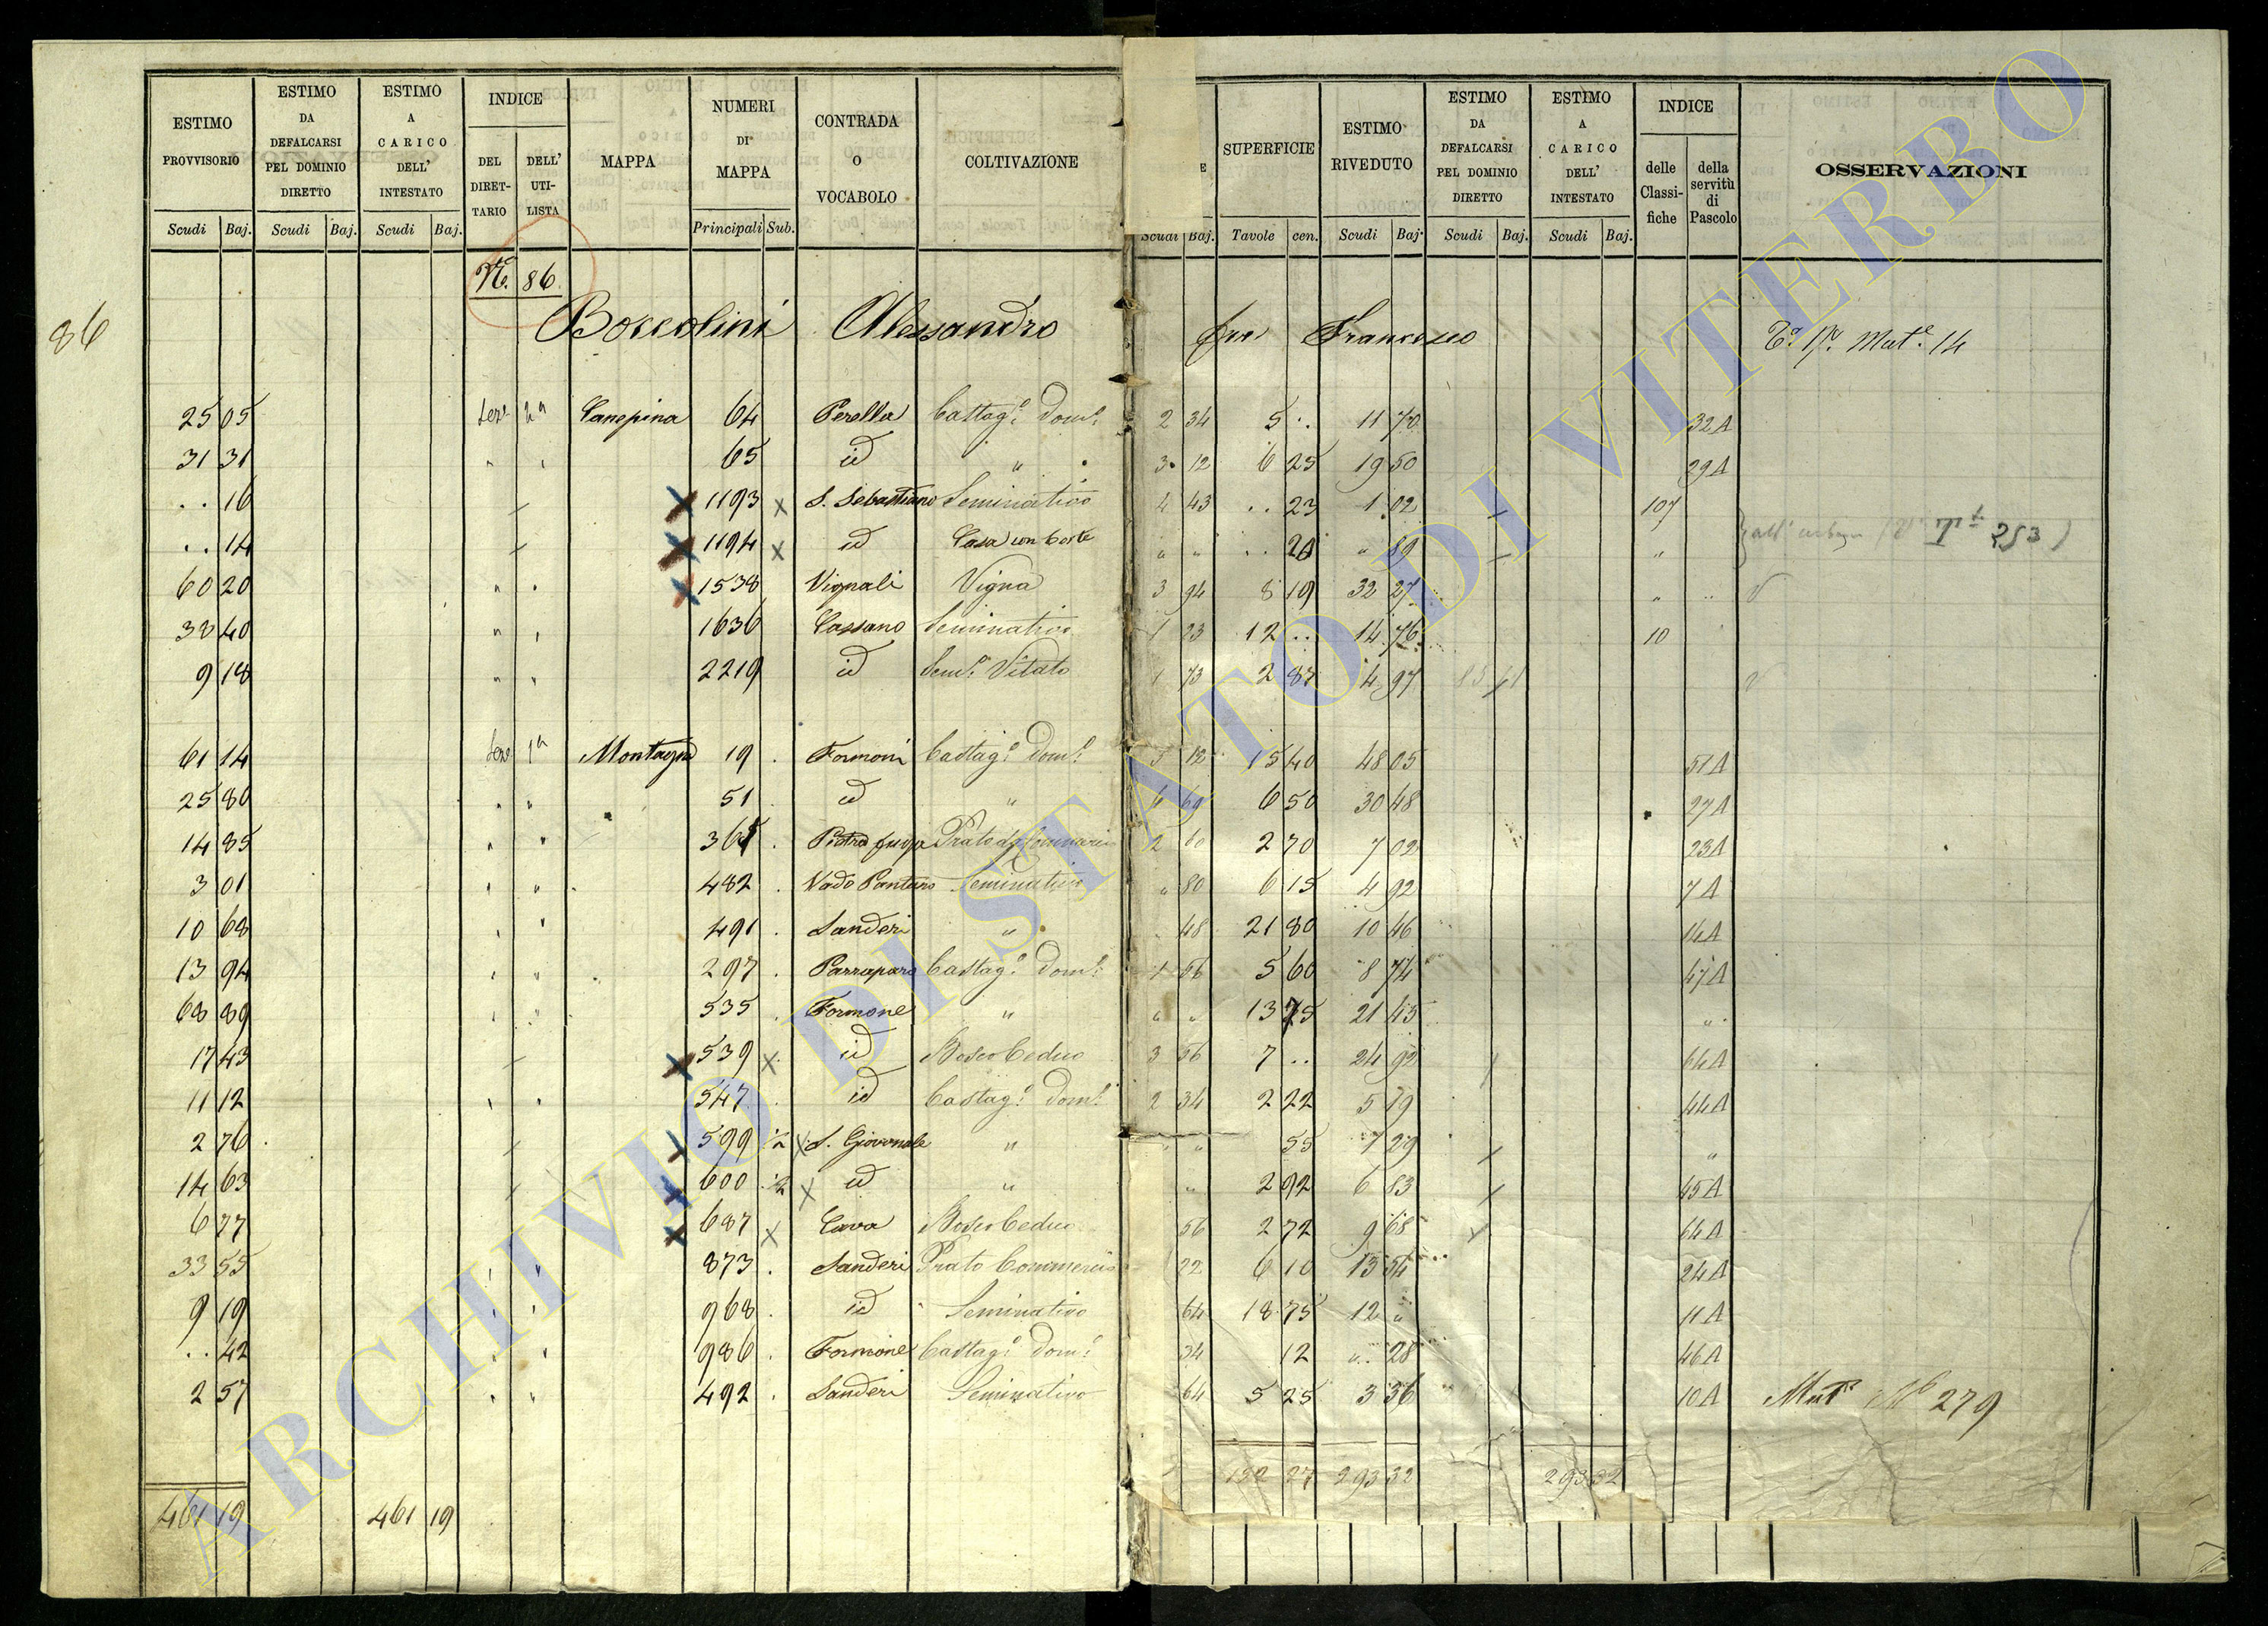 ESTIMO PROVVISORIO | ESTIMO DA DEFALCARSI PEL DOMINIO DIRETTO | ESTIMO A CARICO DELL' INTESTATO | INDICE DEL DIRET-TARIO | DELL' UTI-LISTA | MAPPA | NUMERI DI MAPPA | CONTRADA O VOCABOLO | COLTIVAZIONE | E | SUPERFICIE | ESTIMO RIVEDUTO | ESTIMO DA DEFALCARSI PEL DOMINIO DIRETTO | ESTIMO A CARICO DELL' INTESTATO | INDICE delle Classi-fiche | della servitù di Pascolo | OSSERVAZIONI
Scudi Baj. | Scudi Baj. | Scudi Baj. | Principali Sub. | Scudi Baj. | Tavole cen. | Scudi Baj. | Scudi Baj. | Scudi Baj.
No. 86
86
Boccolini Alessandro Francesco Mut.e 14
25 05 Canepina 64 Perella Castag.o Dom.o 2 34 5 .. 11 70 32A
31 31 " " 65 id " 3 12 6 25 19 50 29A
.. 16 1193 S. Sebastiano Seminativo 4 43 .. 23 1 02 107
.. 14 1194 id Casa con Corte " " .. 20 " 89 " 253
60 20 " " 1538 Vignali Vigna 3 94 8 19 32 27 " "
38 40 " " 1636 Cassano Seminativo 1 23 12 .. 14 76 10
9 18 " " 2219 id Sem.o Vitato 1 73 2 87 4 97
61 14 1a Montagna 19 Formoni Castag.o Dom.o 3 12 15 40 48 05 51A
25 86 " " 51 id " 4 69 6 50 30 48 27A
14 85 " " 365 Pietra Prato da Commercio 2 60 2 70 7 02 23A
3 01 " " 482 Vado Pantaro Seminativo " 80 6 15 4 92 7A
10 68 " " 491 Sanderi " 48 21 80 10 46 14A
13 94 " " 297 Parraparo Castag.o Dom.o 1 56 5 60 8 74 47A
68 89 " " 535 Formone " " " 13 75 21 45 "
17 43 539 id Bosco Ceduo 3 56 7 .. 24 92 64A
11 12 " " 547 id Castag.o Dom.o 2 34 2 22 5 19 44A
2 76 599 2 S. Giovenale " " 55 1 29 "
14 63 600 2 id " " 2 92 6 83 45A
6 77 687 Cava Bosco Ceduo 56 2 72 9 68 64A
33 55 " " 873 Sanderi Prato Commercio 22 6 10 13 54 24A
9 19 " " 968 id Seminativo 64 18 75 12 " 11A
.. 42 " " 986 Formone Castag.o Dom.o 34 12 " 28 46A
2 57 " " 492 Sanderi Seminativo 64 5 25 3 36 10A Mut.e No 279
132 27 293 32 293 32
461 19 461 19
ARCHIVIO DI STATO DI VITERBO